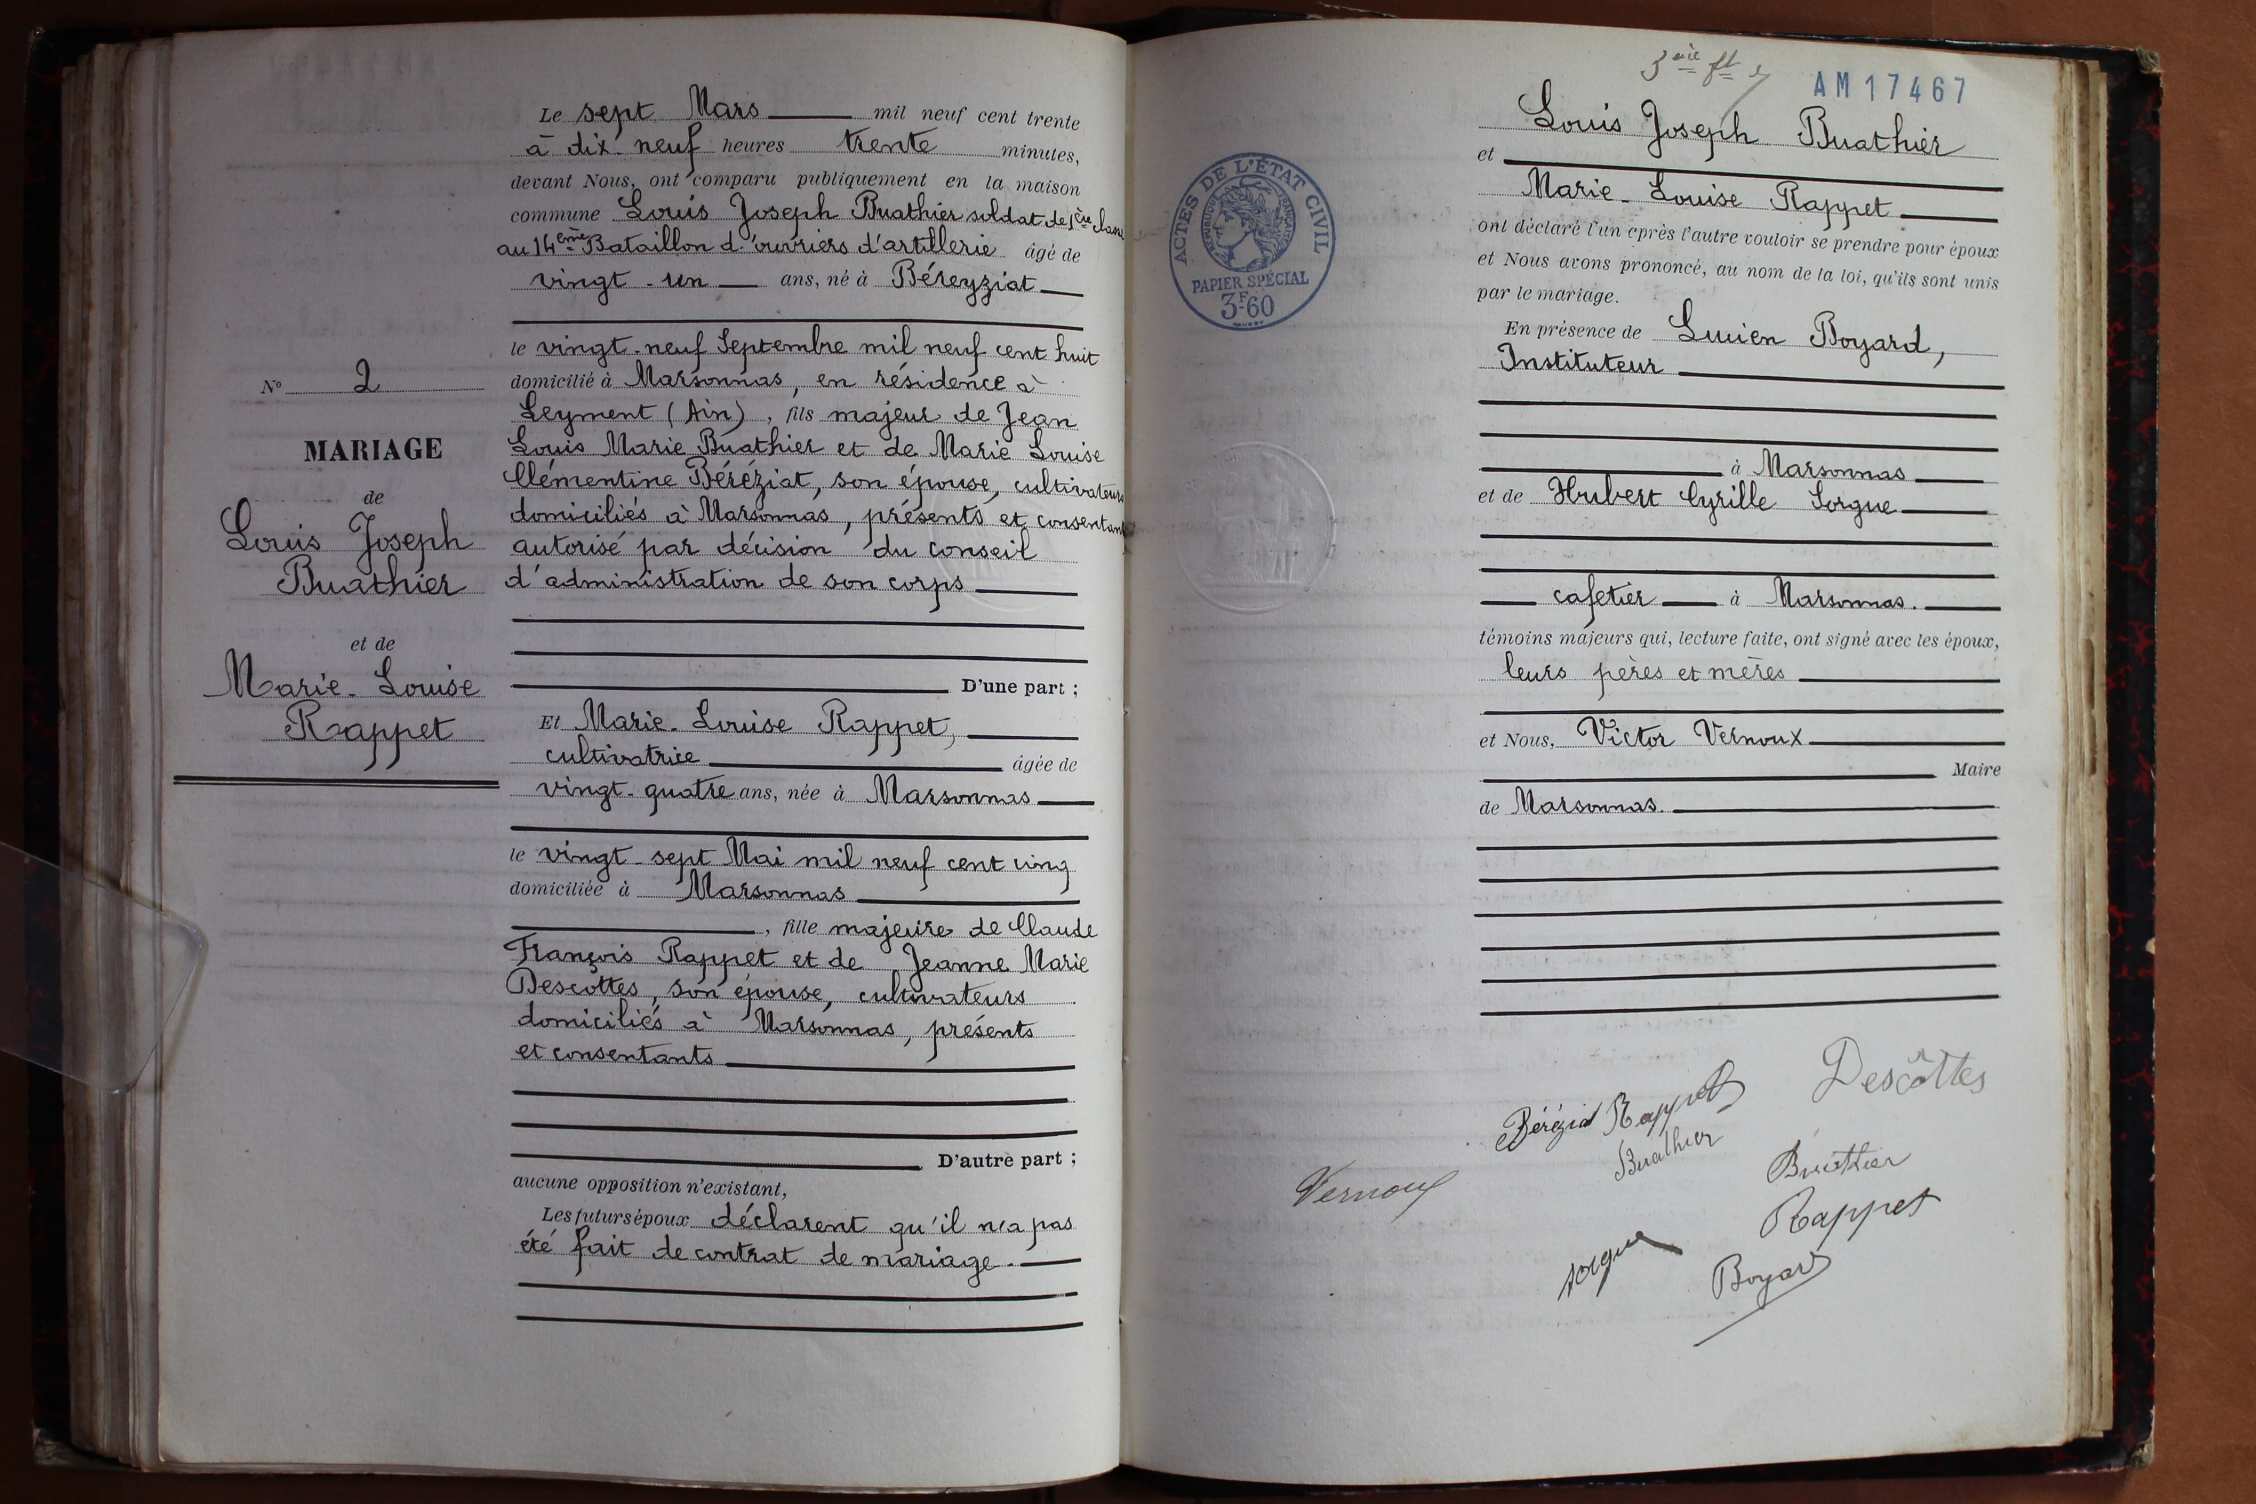 Le sept Mars mil neuf cent trente
à dix neuf heures trente minutes,
devant Nous, ont comparu publiquement en la maison
commune Louis Joseph Buathier soldat de 1ère classe
au 14ème Bataillon d'ouvriers d'artillerie âgé de
vingt-un ans, né à Béreyziat
le vingt-neuf Septembre mil neuf cent huit
domicilié à Marsonnas, en résidence à
Leyment (Ain), fils majeur de Jean
Louis Marie Buathier et de Marie Louise
Clémentine Béréziat, son épouse, cultivateurs
domiciliés à Marsonnas, présents et consentants
autorisé par décision du conseil
d'administration de son corps
D'une part ;
Et Marie-Louise Rappet,
cultivatrice âgée de
vingt-quatre ans, née à Marsonnas
le vingt-sept Mai mil neuf cent cinq
domiciliée à Marsonnas
, fille majeure de Claude
François Rappet et de Jeanne Marie
Descottes, son épouse, cultivateurs
domiciliés à Marsonnas, présents
et consentants
D'autre part ;
aucune opposition n'existant,
Les futurs époux déclarent qu'il n'a pas
été fait de contrat de mariage.
N° 2
MARIAGE
de
Louis Joseph
Buathier
et de
Marie-Louise
Rappet
3ème ft
AM17467
ACTES DE L'ÉTAT CIVIL
RÉPUBLIQUE FRANÇAISE
PAPIER SPÉCIAL
3F.60
Louis Joseph Buathier
et
Marie-Louise Rappet
ont déclaré l'un après l'autre vouloir se prendre pour époux
et Nous avons prononcé, au nom de la loi, qu'ils sont unis
par le mariage.
En présence de Lucien Boyard,
Instituteur
à Marsonnas
et de Hubert Cyrille Sorgue
cafetier à Marsonnas.
témoins majeurs qui, lecture faite, ont signé avec les époux,
leurs pères et mères
et Nous, Victor Vernoux
Maire
de Marsonnas.
Descôttes
Béréziat Rappet
Buathier
Buathier
Vernoux
Rappet
Sorgue
Boyard